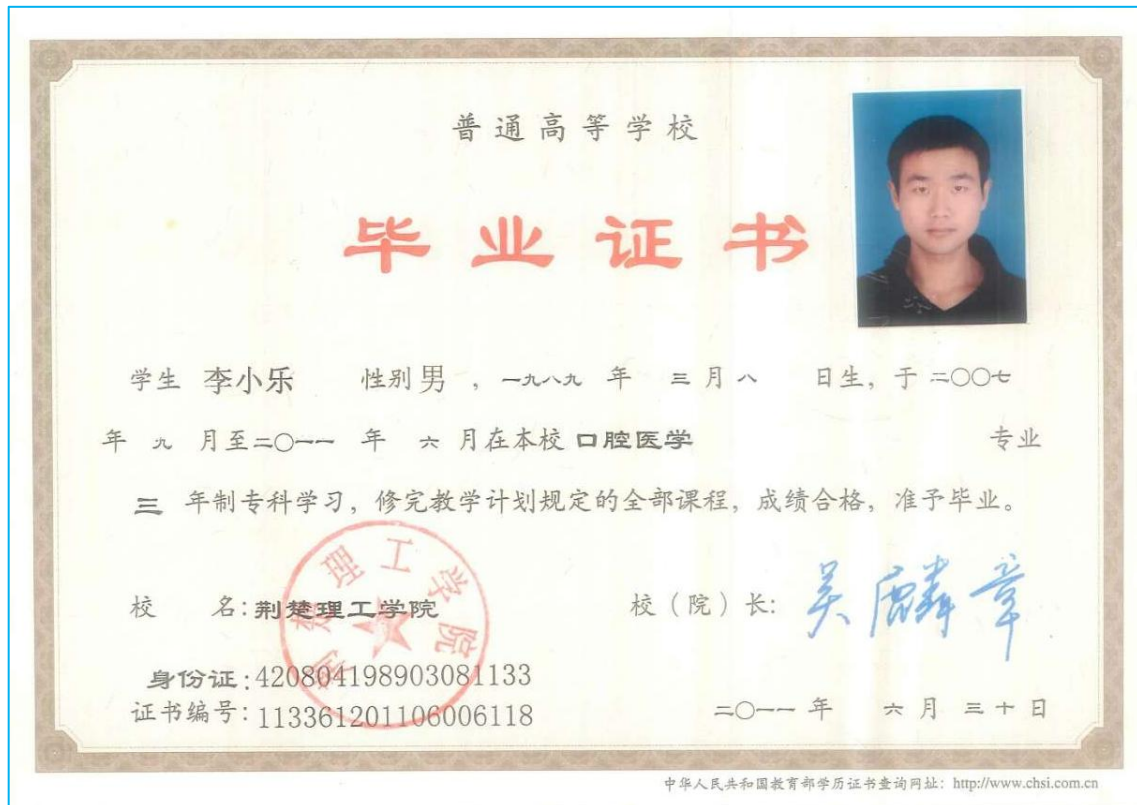 普通高等学校
毕业证书
学生 李小乐 性别 男 , 一九八九 年 三 月 八 日生, 于 二〇〇七
年 九 月至 二〇一一 年 六 月在本校 口腔医学 专业
三 年制专科学习, 修完教学计划规定的全部课程, 成绩合格, 准予毕业。
校 名: 荆楚理工学院 校(院)长: 吴麟章
荆楚理工学院
身份证: 420804198903081133
证书编号: 113361201106006118 二〇一一 年 六 月 三 十 日
中华人民共和国教育部学历证书查询网址: http://www.chsi.com.cn